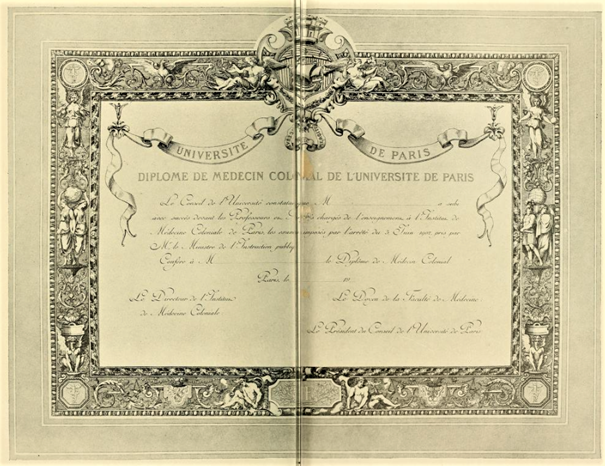 UNIVERSITE DE PARIS
DIPLOME DE MEDECIN COLONIAL DE L'UNIVERSITE DE PARIS
Le Conseil de l'Université M a subi
avec succès devant les Professeurs ou chargés de l'enseignement à l'Institut de
Médecine Coloniale de Paris, les par l'arrêté du pris par
Mr. le Ministre de l'Instruction
Confère à M le Diplôme de Médecin Colonial
Paris, le
Le Directeur de l'Institut
de Médecine Coloniale
Le Doyen de la Faculté de Médecine
Le Président du Conseil de l'Université de Paris